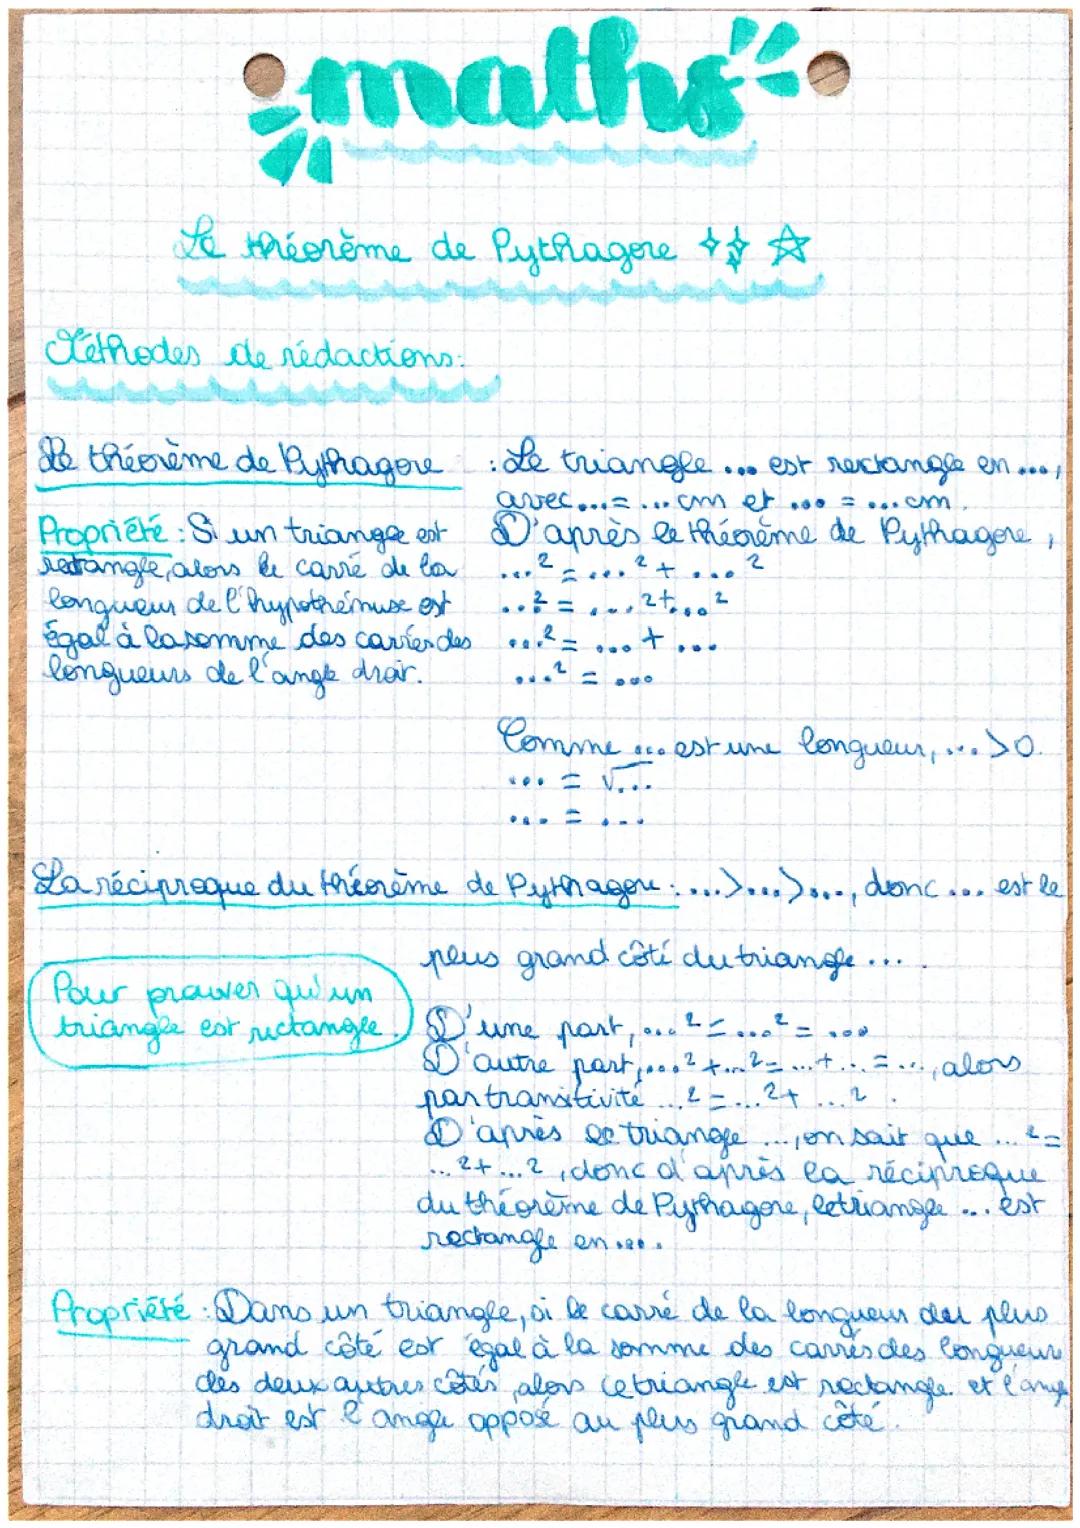 maths
Le théorème de Pythagore
Méthodes de rédactions:
Le théorème de Pythagore : Le triangle ... est rectangle en ...,
avec ... = ... cm et ... = ... cm.
Propriété : Si un triangle est
rectangle, alors le carré de la
longueur de l'hypothénuse est
égal à la somme des carrés des
longueurs de l'angle droit.
D'après le théorème de Pythagore,
...² = ...² + ...²
...² = ...² + ...²
...² = ... + ...
...² = ...
Comme ... est une longueur, ... > 0.
... = √...
... = ...
La réciproque du théorème de Pythagore : ... > ... > ..., donc ... est le
plus grand côté du triangle ... .
Pour prouver qu'un
triangle est rectangle.
D'une part, ...² = ...² = ...
D'autre part, ...² + ...² = ... + ... = ..., alors
par transitivité ...² = ...² + ...² .
D'après le triangle ..., on sait que ...² =
...² + ...², donc d'après la réciproque
du théorème de Pythagore, le triangle ... est
rectangle en ... .
Propriété : Dans un triangle, si le carré de la longueur du plus
grand côté est égal à la somme des carrés des longueurs
des deux autres côtés, alors ce triangle est rectangle et l'angle
droit est l'angle opposé au plus grand côté.